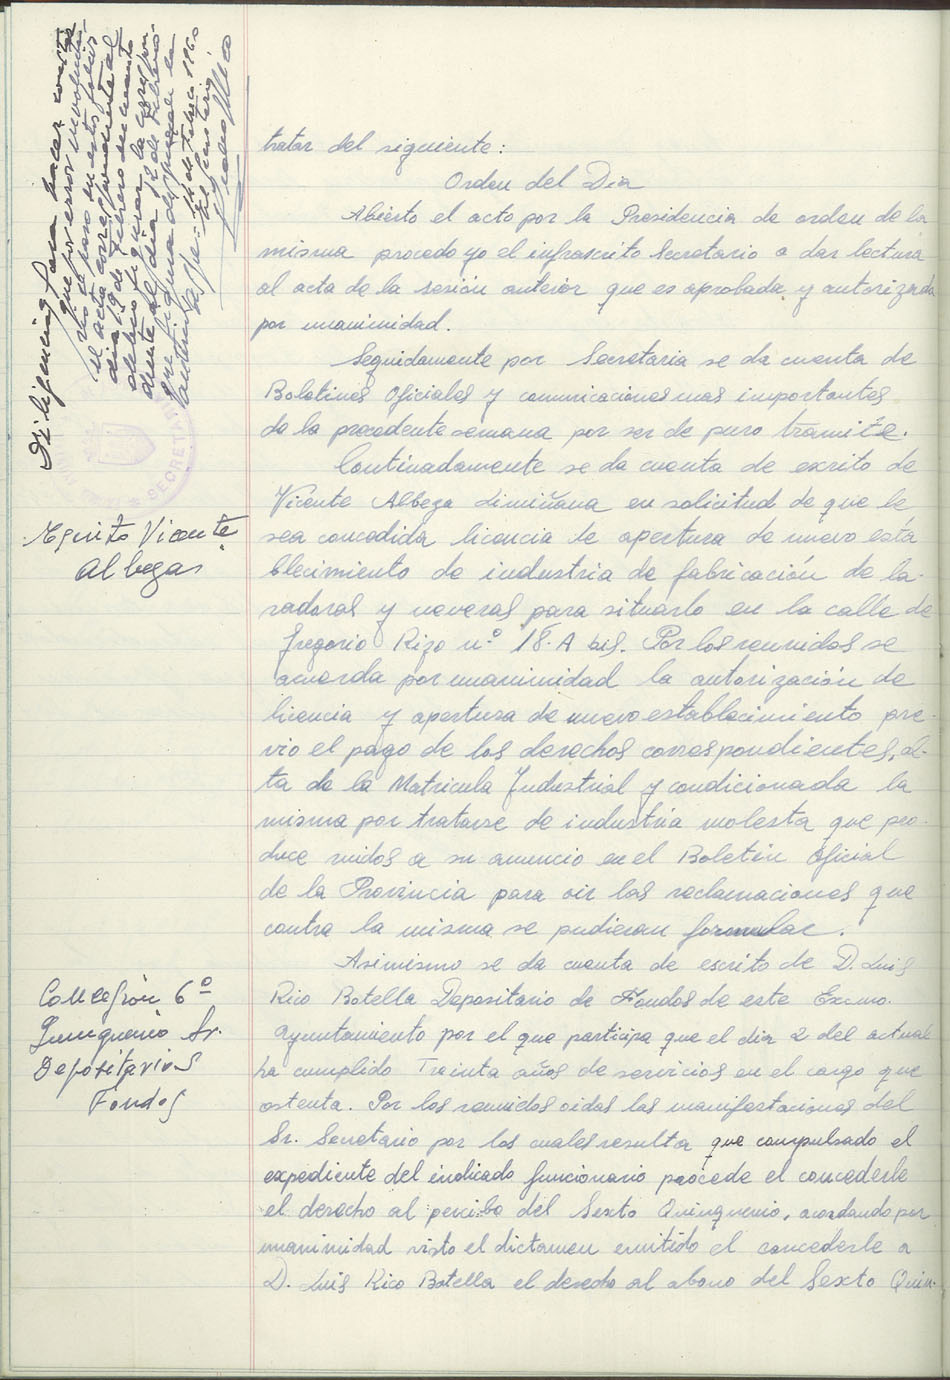 Diligencia, para hacer constar
que por error involunta-
rio se puso en estos folios
el acta correspondiente al
dia 19 de Febrero de cuanto
debio figurar la correspon-
diente al dia 12 de Febrero
que figura despues de la
12 de Febrero 1960
El Secretario
SECRETARIA
tratar del siguiente:
Orden del Dia
Abierto el acto por la Presidencia de orden de la
misma procedo yo el infrascrito Secretario a dar lectura
al acta de la sesión anterior que es aprobada y autorizada
por unanimidad.
Seguidamente por Secretaria se da cuenta de
Boletines Oficiales y comunicaciones mas importantes
de la precedente semana por ser de puro trámite.
Continadamente se da cuenta de escrito de
Vicente Albeza Limiñana en solicitud de que le
sea concedida licencia de apertura de nuevo esta
blecimiento de industria de fabricación de la-
vadoras y neveras para situarlo en la calle de
Gregorio Rizo nº 18-A bis. Por los reunidos se
acuerda por unanimidad la autorización de
licencia y apertura de nuevo establecimiento pre-
vio el pago de los derechos correspondientes, al-
ta de la Matricula Industrial y condicionada la
misma por tratarse de industria molesta que pro-
duce ruidos a su anuncio en el Boletín Oficial
de la Provincia para oir las reclamaciones que
contra la misma se pudieran formular.
Asimismo se da cuenta de escrito de D. Luis
Rico Botella Depositario de Fondos de este Excmo.
Ayuntamiento por el que participa que el dia 2 del actual
ha cumplido Treinta años de servicios en el cargo que
ostenta. Por los reunidos oidas las manifestaciones del
Sr. Secretario por los cuales resulta que compulsado el
expediente del indicado funcionario procede el concederle
el derecho al percibo del Sexto Quinquenio, acordando por
unanimidad visto el dictamen emitido el concederle a
D. Luis Rico Botella el derecho al abono del Sexto Quin-
Escrito Vicente
Albeza
Concesión 6º
Quinquenio Sr.
Depositario
Fondos